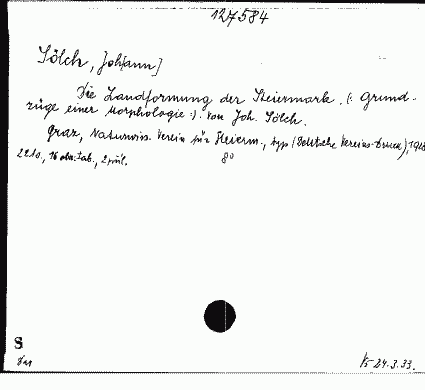 127584
Sölch, Joh[ann]
Die Landformung der Steiermark. (: Grund-
züge einer Morphologie :). Von Joh. Sölch.
Graz, Naturwiss. Verein für Steierm., typ (Deutsche Vereins-Druck),
8o
221 s., 2
S
24.3.33.